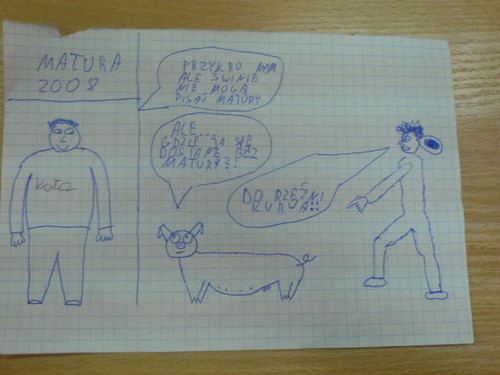 MATURA
2008
PRZYKRO NAM
ALE ŚWINIE
NIE MOGĄ
PISAĆ MATURY
ALE...
GDZIE JA SIĘ
DOSTANĘ BEZ
MATURY?!
DO RZEŹNI
KUR A!!
Kota